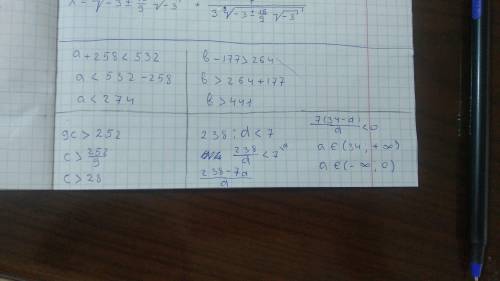 3∛-3±
a + 258 < 532
a < 532 - 258
a < 274
b - 177 > 264
b > 264 + 177
b > 441
9c > 252
c > 252/9
c > 28
238 : d < 7
238/d < 7
238-7d/d
7(34-d)/d < 0
a ∈ (34, +∞)
a ∈ (-∞, 0)